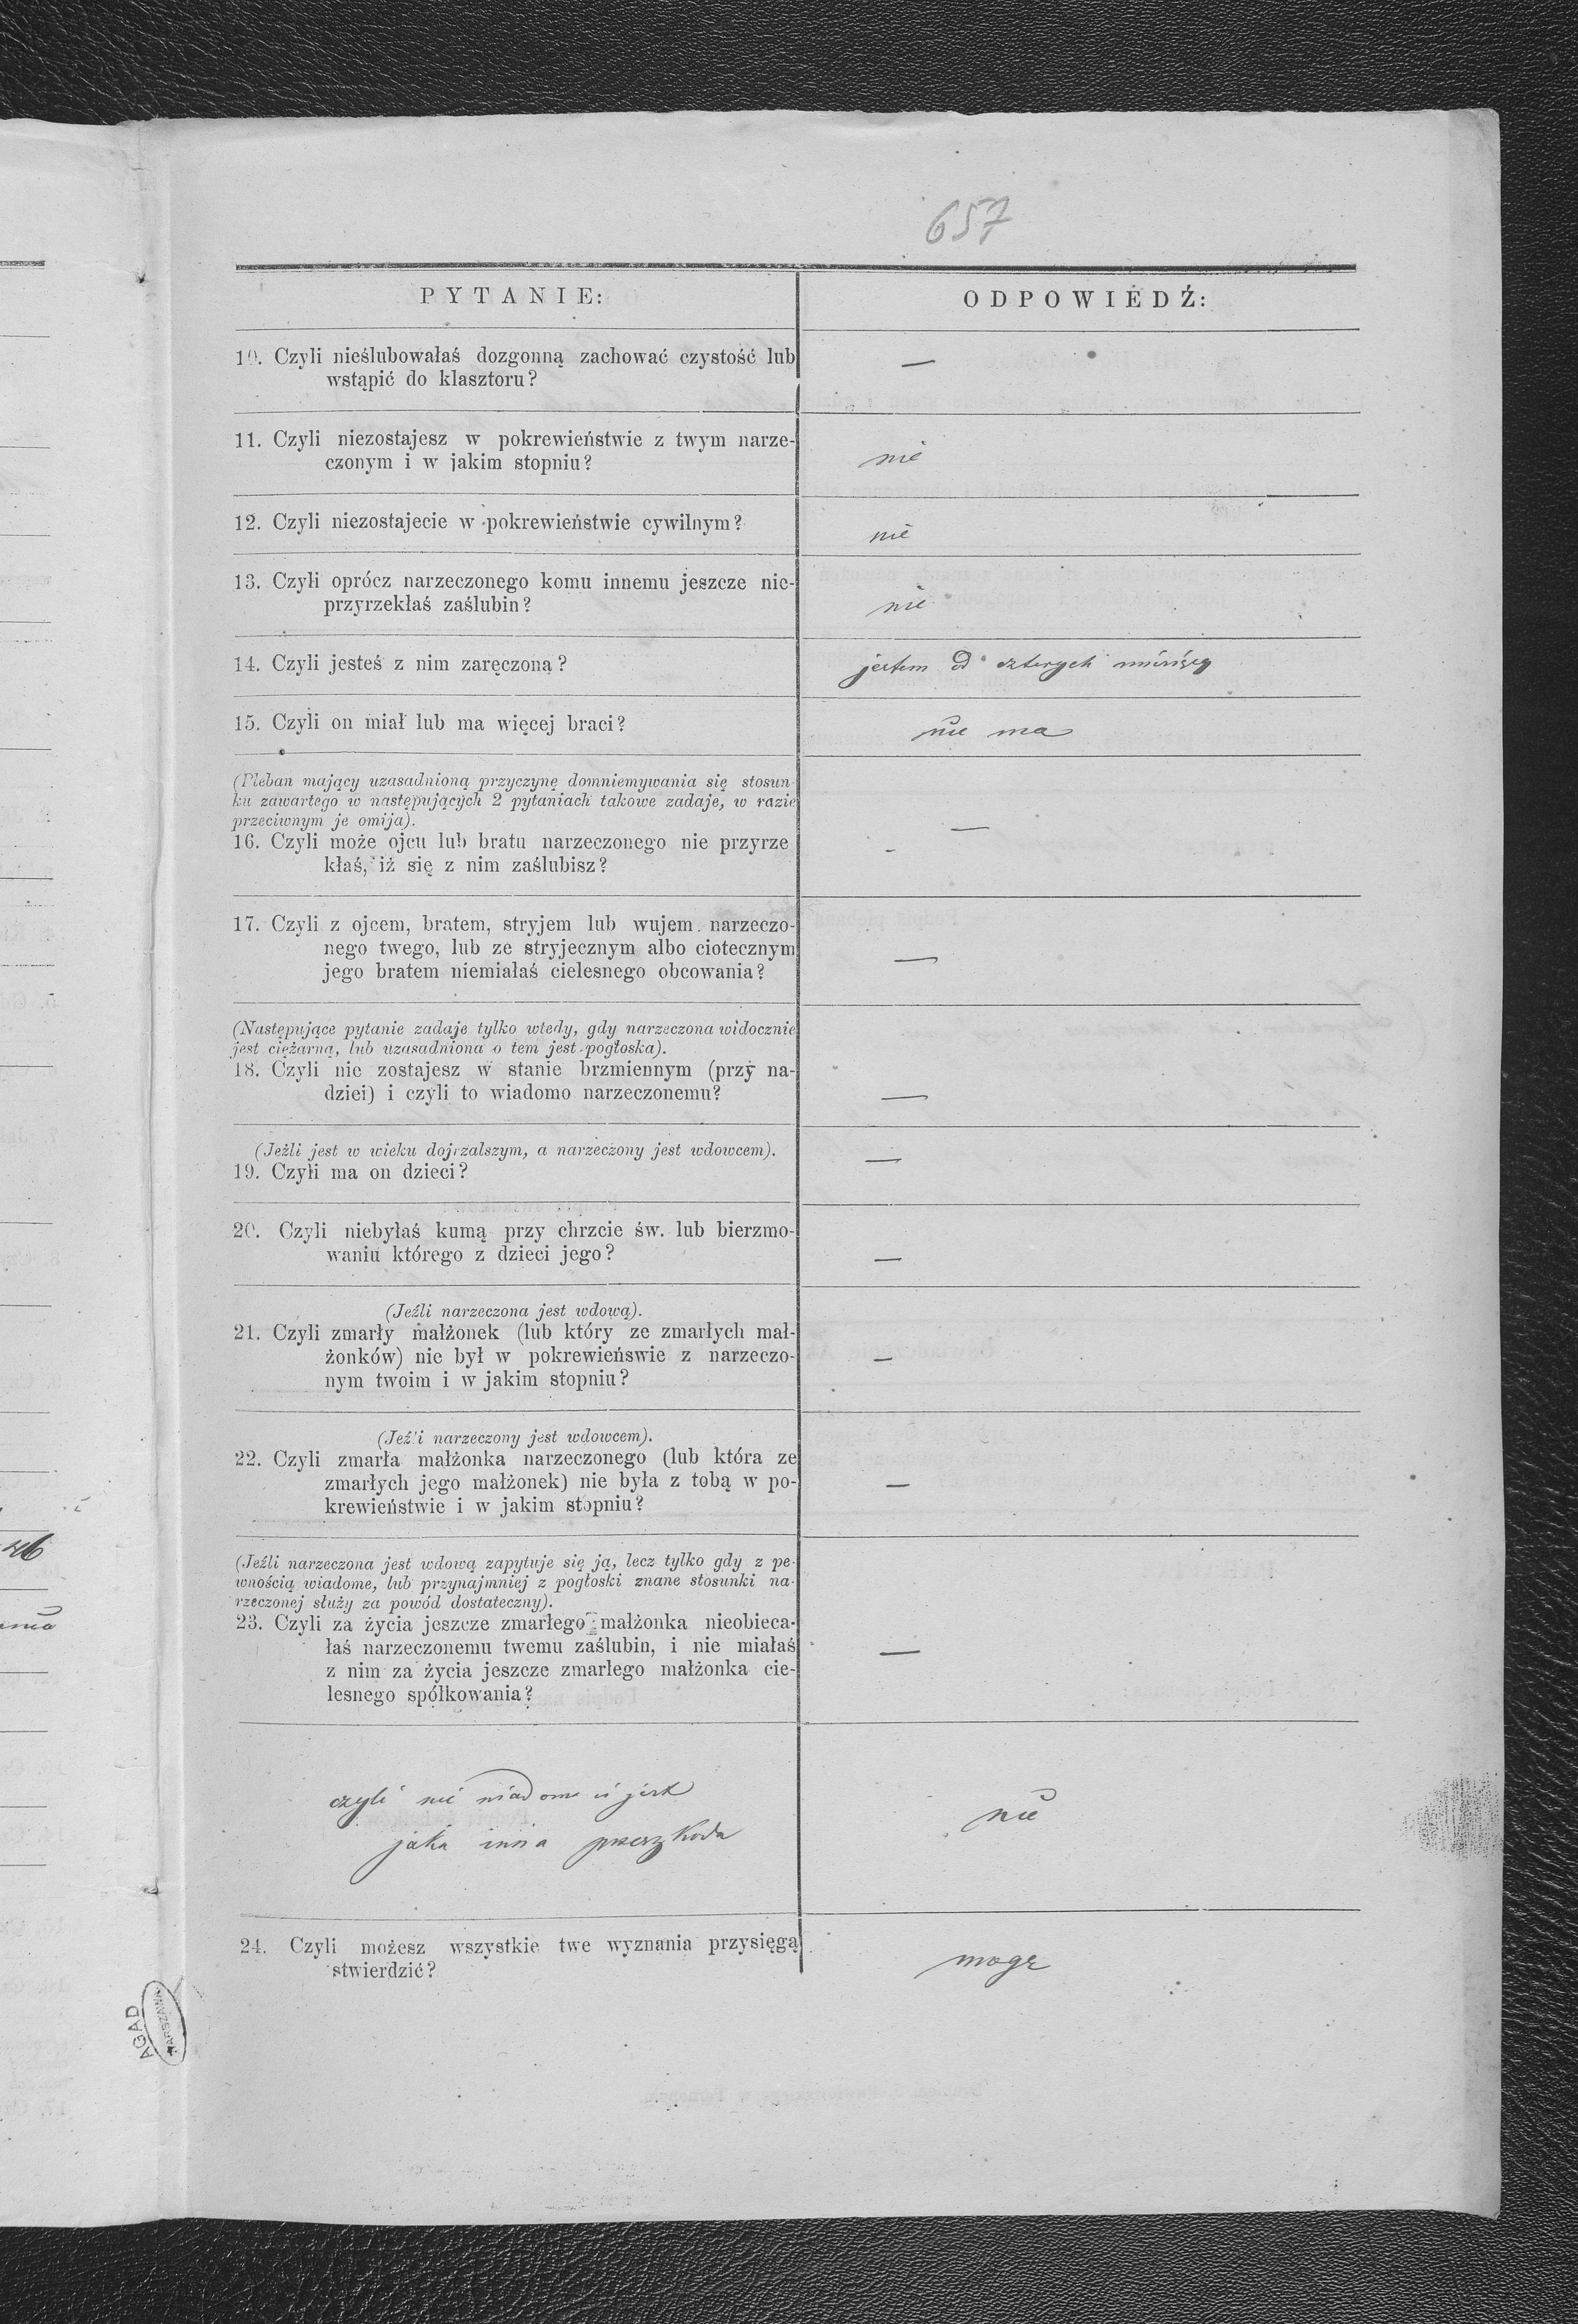 657
PYTANIE:
ODPOWIEDŹ:
10. Czyli nieślubowałaś dozgonną zachować czystość lub
wstąpić do klasztoru?
—
11. Czyli niezostajesz w pokrewieństwie z twym narze-
czonym i w jakim stopniu?
nie
12. Czyli niezostajecie w pokrewieństwie cywilnym?
nie
13. Czyli oprócz narzeczonego komu innemu jeszcze nie-
przyrzekłaś zaślubin?
nie
14. Czyli jesteś z nim zaręczoną?
jestem od czterych miesięcy
15. Czyli on miał lub ma więcej braci?
nie ma
(Pleban mający uzasadnioną przyczynę domniemywania się stosun-
ku zawartego w następujących 2 pytaniach takowe zadaje, w razie
przeciwnym je omija).
—
16. Czyli może ojcu lub bratu narzeczonego nie przyrze
kłaś, iż się z nim zaślubisz?
-
17. Czyli z ojcem, bratem, stryjem lub wujem narzeczo-
nego twego, lub ze stryjecznym albo ciotecznym
jego bratem niemiałaś cielesnego obcowania?
—
(Następujące pytanie zadaje tylko wtedy, gdy narzeczona widocznie
jest ciężarną, lub uzasadniona o tem jest pogłoska).
18. Czyli nie zostajesz w stanie brzmiennym (przy na-
dziei) i czyli to wiadomo narzeczonemu?
—
(Jeźli jest w wieku dojrzalszym, a narzeczony jest wdowcem).
19. Czyli ma on dzieci?
—
20. Czyli niebyłaś kumą przy chrzcie św. lub bierzmo-
waniu którego z dzieci jego?
—
(Jeźli narzeczona jest wdową).
21. Czyli zmarły małżonek (lub który ze zmarłych mał-
żonków) nie był w pokrewieńswie z narzeczo-
nym twoim i w jakim stopniu?
—
(Jeźli narzeczony jest wdowcem).
22. Czyli zmarła małżonka narzeczonego (lub która ze
zmarłych jego małżonek) nie była z tobą w po-
krewieństwie i w jakim stopniu?
—
(Jeźli narzeczona jest wdową zapytuje się ją, lecz tylko gdy z pe-
wnością wiadome, lub przynajmniej z pogłoski znane stosunki na-
rzeczonej służy za powód dostateczny).
23. Czyli za życia jeszcze zmarłego małżonka nieobieca-
łaś narzeczonemu twemu zaślubin, i nie miałaś
z nim za życia jeszcze zmarłego małżonka cie-
lesnego spółkowania?
—
czyli nie wiadomo iż jest
jaka inna przeszkoda
nie
24. Czyli możesz wszystkie twe wyznania przysięgą
stwierdzić?
mogę
AGAD
WARSZAWA